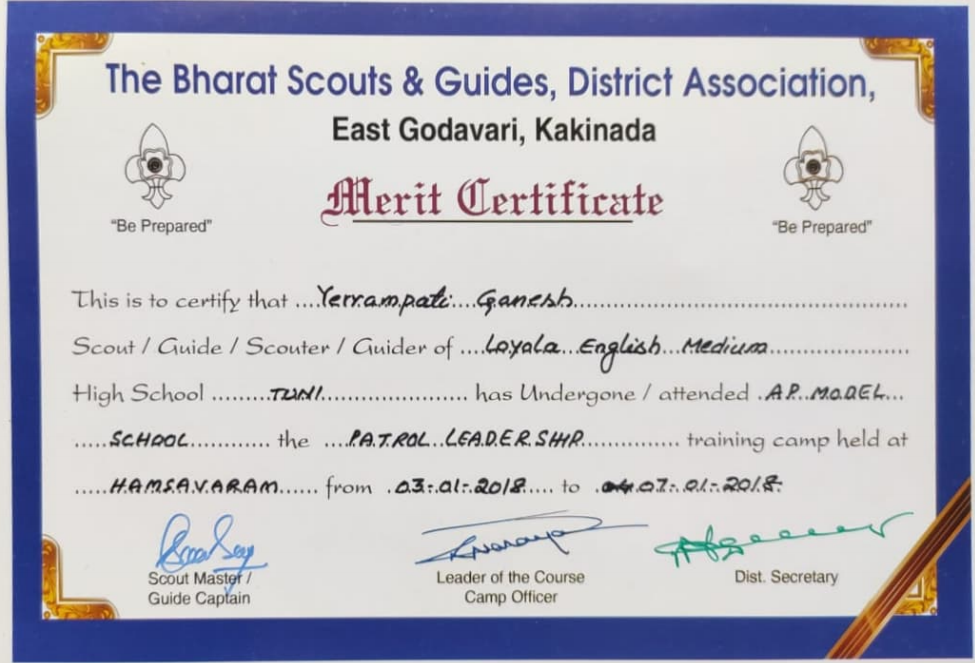 The Bharat Scouts & Guides, District Association,
East Godavari, Kakinada
"Be Prepared"
Merit Certificate
"Be Prepared"
This is to certify that ....Yerrampati....Ganesh....
Scout / Guide / Scouter / Guider of ....Loyala...English...Medium....
High School ....TUNI.... has Undergone / attended .A.P..MODEL...
.....SCHOOL.... the ....PATROL..LEADERSHIP.... training camp held at
.....HAMSAVARAM...... from .03-01-2018..... to .07-01-2018.
Scout Master /
Guide Captain
Leader of the Course
Camp Officer
Dist. Secretary